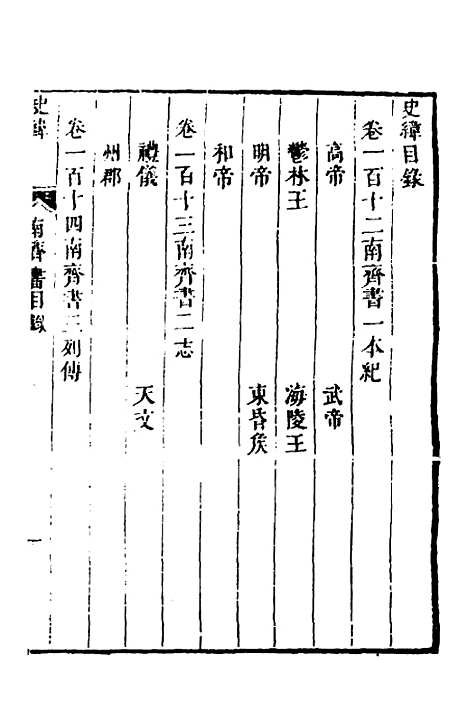 史緯目錄
卷一百十二南齊書一本紀
高帝 武帝
鬱林王 海陵王
明帝 東昏矦
和帝
卷一百十三南齊書二志
禮儀 天文
州郡
卷一百十四南齊書三列傳
史緯 南齊書目錄 一